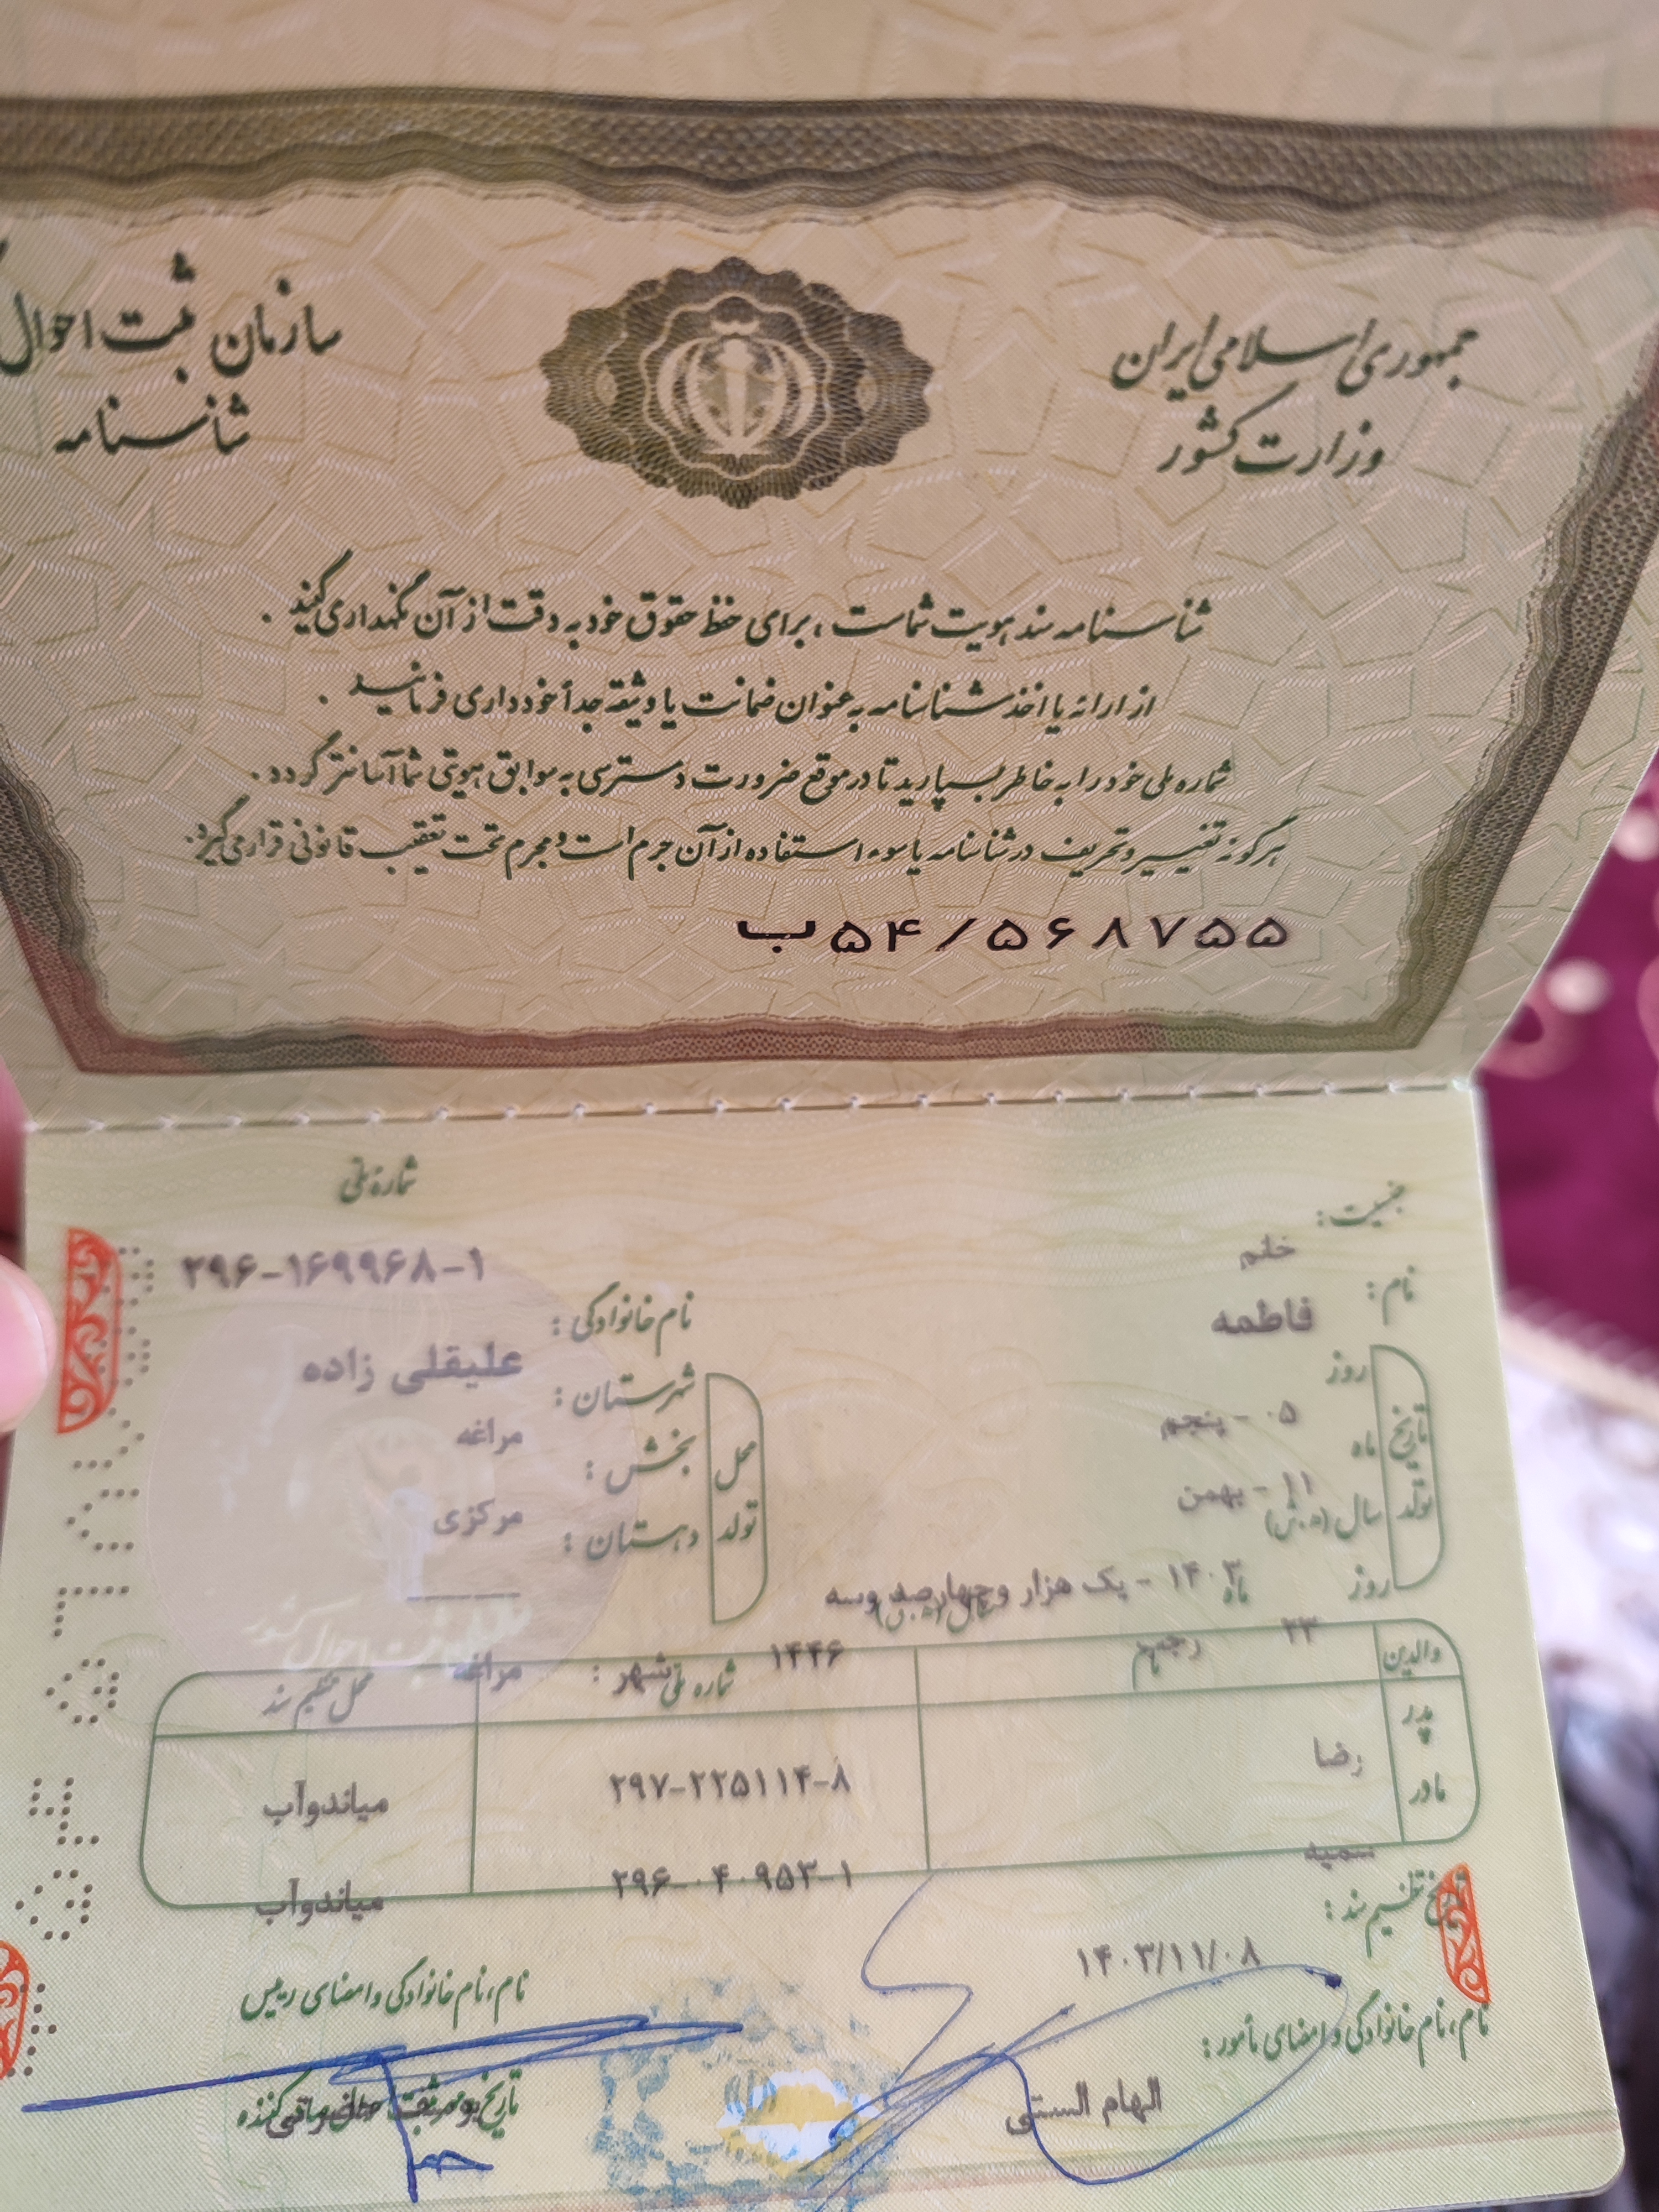 جمهوری اسلامی ایران
وزارت کشور
سازمان ثبت احوال
شناسنامه
شناسنامه سند هویت شماست ، برای حفظ حقوق خود به دقت از آن نگهداری کنید .
از ارائه یا اخذ شناسنامه به عنوان ضمانت یا وثیقه جداً خودداری فرمائید .
شماره ملی خود را به خاطر بسپارید تا در موقع ضرورت دسترسی به سوابق هویتی شما آسانتر گردد .
هرگونه تغییر و تحریف در شناسنامه یا سوء استفاده از آن جرم است و مجرم تحت تعقیب قانونی قرار می‌گیرد.
ب۵۴/۵۶۸۷۵۵
شماره ملی
۲۹۶-۱۶۹۹۶۸-۱
جنسیت :
خانم
نام :
فاطمه
نام خانوادگی :
علیقلی زاده
تاریخ تولد
روز
۰۵ - پنجم
ماه
۱۱ - بهمن
سال (ه.ش)
۱۴۰۳ - یک هزار و چهارصد و سه
روز
۲۳
ماه
رجب
سال (ه.ق)
۱۴۴۶
محل تولد
شهرستان :
مراغه
بخش :
مرکزی
دهستان :
شهر :
مراغه
والدین
نام
شماره ملی
محل تنظیم سند
پدر
رضا
۲۹۷-۲۲۵۱۱۴-۸
میاندوآب
مادر
سمیه
۲۹۶-۰۴۰۹۵۳-۱
میاندوآب
تاریخ تنظیم سند :
۱۴۰۳/۱۱/۰۸
نام، نام خانوادگی و امضای مأمور :
الهام الستی
نام، نام خانوادگی و امضای رییس